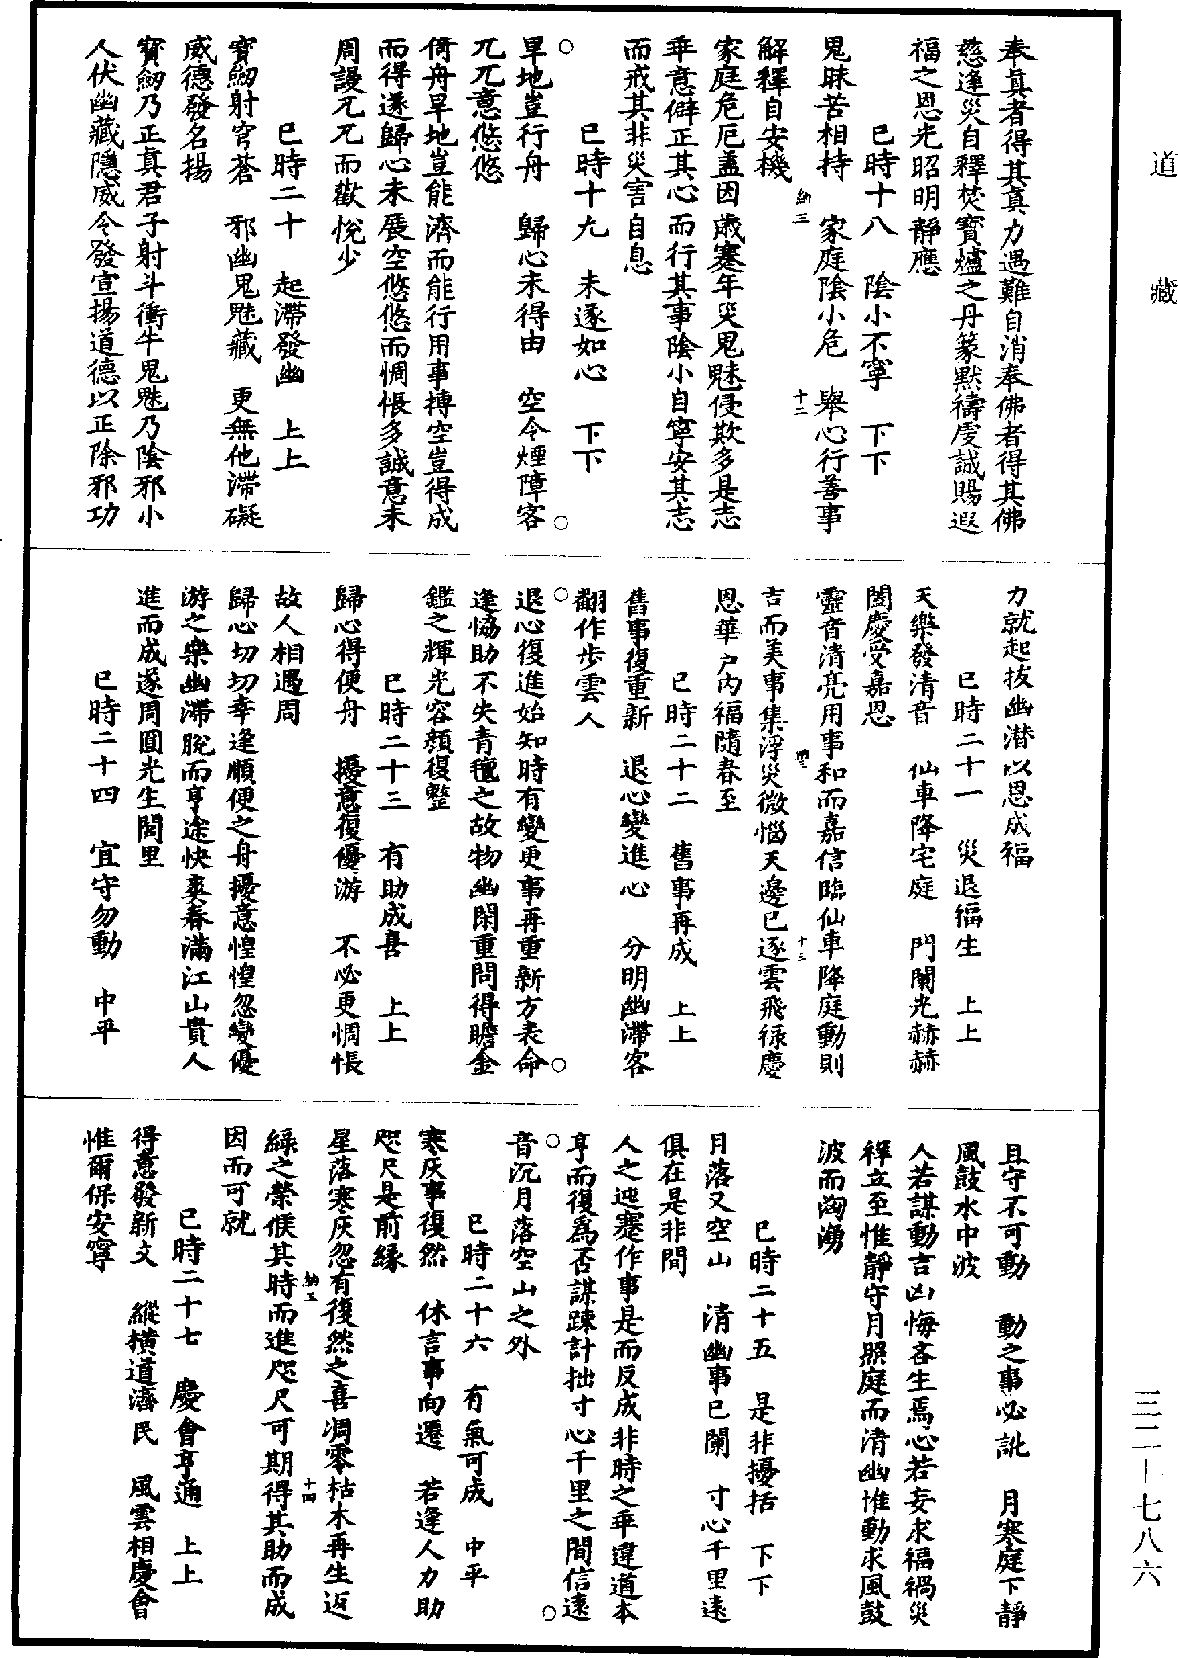 道藏
奉真者得其真力遇難自消奉佛者得其佛
慈逢災自釋焚寶爐之丹篆默禱虔誠賜遐
福之恩光昭明靜應
巳時十八　陰小不寧　下下
鬼昧苦相持　家庭陰小危　舉心行善事
解釋自安機
納三　十二
家庭危厄盖因歲蹇年災鬼魅侵欺多是志
乖意僻正其心而行其事陰小自寧安其志
而戒其非災害自息
巳時十九　未遂如心　下下
○旱地豈行舟　歸心未得由　空令煙障客○
兀兀意悠悠
倚舟旱地豈能濟而能行用事摶空豈得成
而得遂歸心未展空悠悠而惆悵多誠意未
周謾兀兀而歡悅少
巳時二十　起滯發幽　上上
寶劒射穹蒼　邪幽鬼魅藏　更無他滯礙
威德發名揚
寶劒乃正真君子射斗衝牛鬼魅乃陰邪小
人伏幽藏隱威令發宣揚道德以正除邪功
力就起拔幽潛以恩成福
巳時二十一　災退福生　上上
天樂發清音　仙車降宅庭　門闌光赫赫
閤慶受嘉恩
靈音清亮用事和而嘉信臨仙車降庭動則
十三
吉而美事集浮災微惱天邊已逐雲飛祿慶
恩華户内福隨春至
巳時二十二　舊事再成　上上
舊事復重新　退心變進心　分明幽滯客
翻作步雲人
○退心復進始知時有變更事再重新方表命○
逢恊助不失青氊之故物幽閑重問得瞻金
鑑之輝光容顏復整
巳時二十三　有助成喜　上上
歸心得便舟　擾意復優游　不必更惆悵
故人相遇周
歸心切切幸逢順便之舟擾意惶惶忽變優
游之樂幽滯脫而亨途快爽春滿江山貴人
進而成遂周圓光生閭里
巳時二十四　宜守勿動　中平
且守不可動　動之事必訛　月寒庭下靜
風鼓水中波
人若謀動吉凶悔吝生焉心若妄求福禍災
釋立至惟靜守月照庭而清幽惟動求風鼓
波而洶湧
巳時二十五　是非擾括　下下
月落又空山　清幽事已闌　寸心千里遠
俱在是非間
人之迍蹇作事是而反成非時之乖違道本
亨而復為否謀踈計拙寸心千里之間信遠
○音沉月落空山之外○
巳時二十六　有氣可成　中平
寒灰事復然　休言事向遷　若逢人力助
咫尺是前緣
星落寒灰忽有復然之喜凋零枯木再生返
納五　十四
綠之榮候其時而進咫尺可期得其助而成
因而可就
巳時二十七　慶會亨通　上上
得意發新文　縱橫道濟民　風雲相慶會
惟爾保安寧
三二-七八六